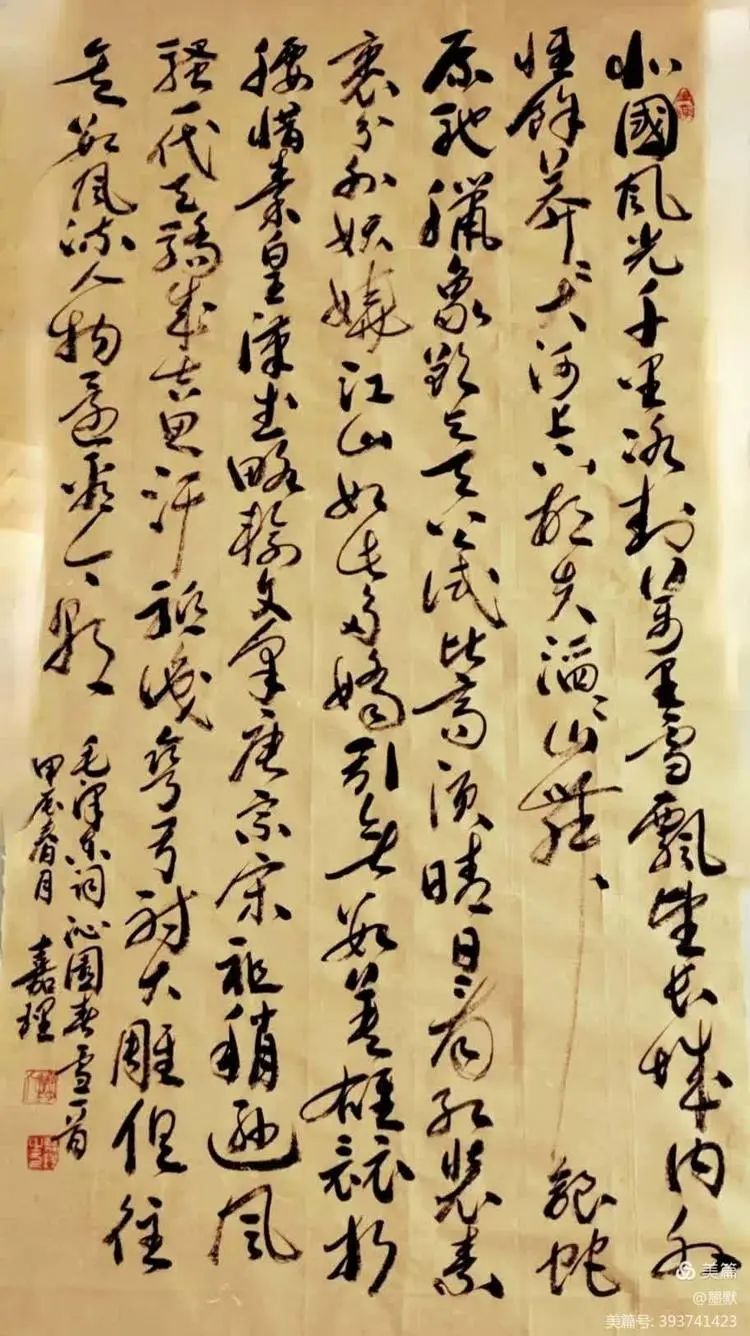 北國風光千里冰封萬里雪飄望長城內外
惟餘莽〻大河上下頓失滔〻山舞銀蛇
原馳臘象欲與天公試比高須晴日看紅裝素
裹分外妖嬈江山如此多嬌引無數英雄競折
腰惜秦皇漢武略輸文采唐宗宋祖稍遜風
騷一代天驕成吉思汗祗識彎弓射大雕俱往
矣數風流人物還看今朝
毛澤東词沁園春雪一首
甲辰春月 嘉理
美篇
@墨默
美篇号: 393741423